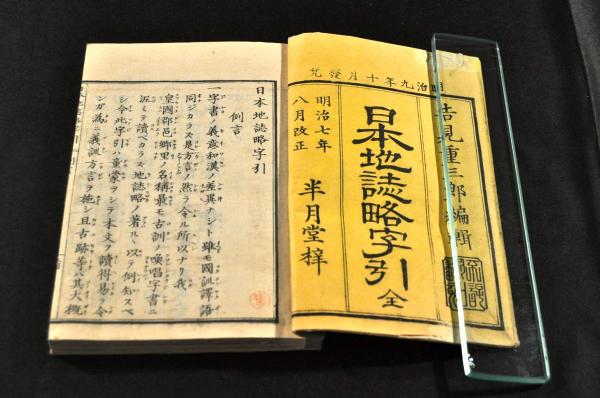 明治九年十月發兌
吉見重三郎編輯
日本地誌略字引 全
明治七年
八月改正
半月堂梓
日本地誌略字引
例言
一字書ノ義意和漢ノ差異ナシト雖モ國訓譯語
同ジカラズ是方言ノ然ラ令ル所以ナリ我
皇國郡邑郷里ノ名稱最モ古訓ノ喚唱字書ニ
泥ミテ讀ベカラズ地誌略ノ著ル以テ例知スベ
シ今此字引ハ童蒙ヲシテ本文ノ讀得易ラ令
ンガ為ニ義訓方言ヲ施シ且古跡等ハ其大概